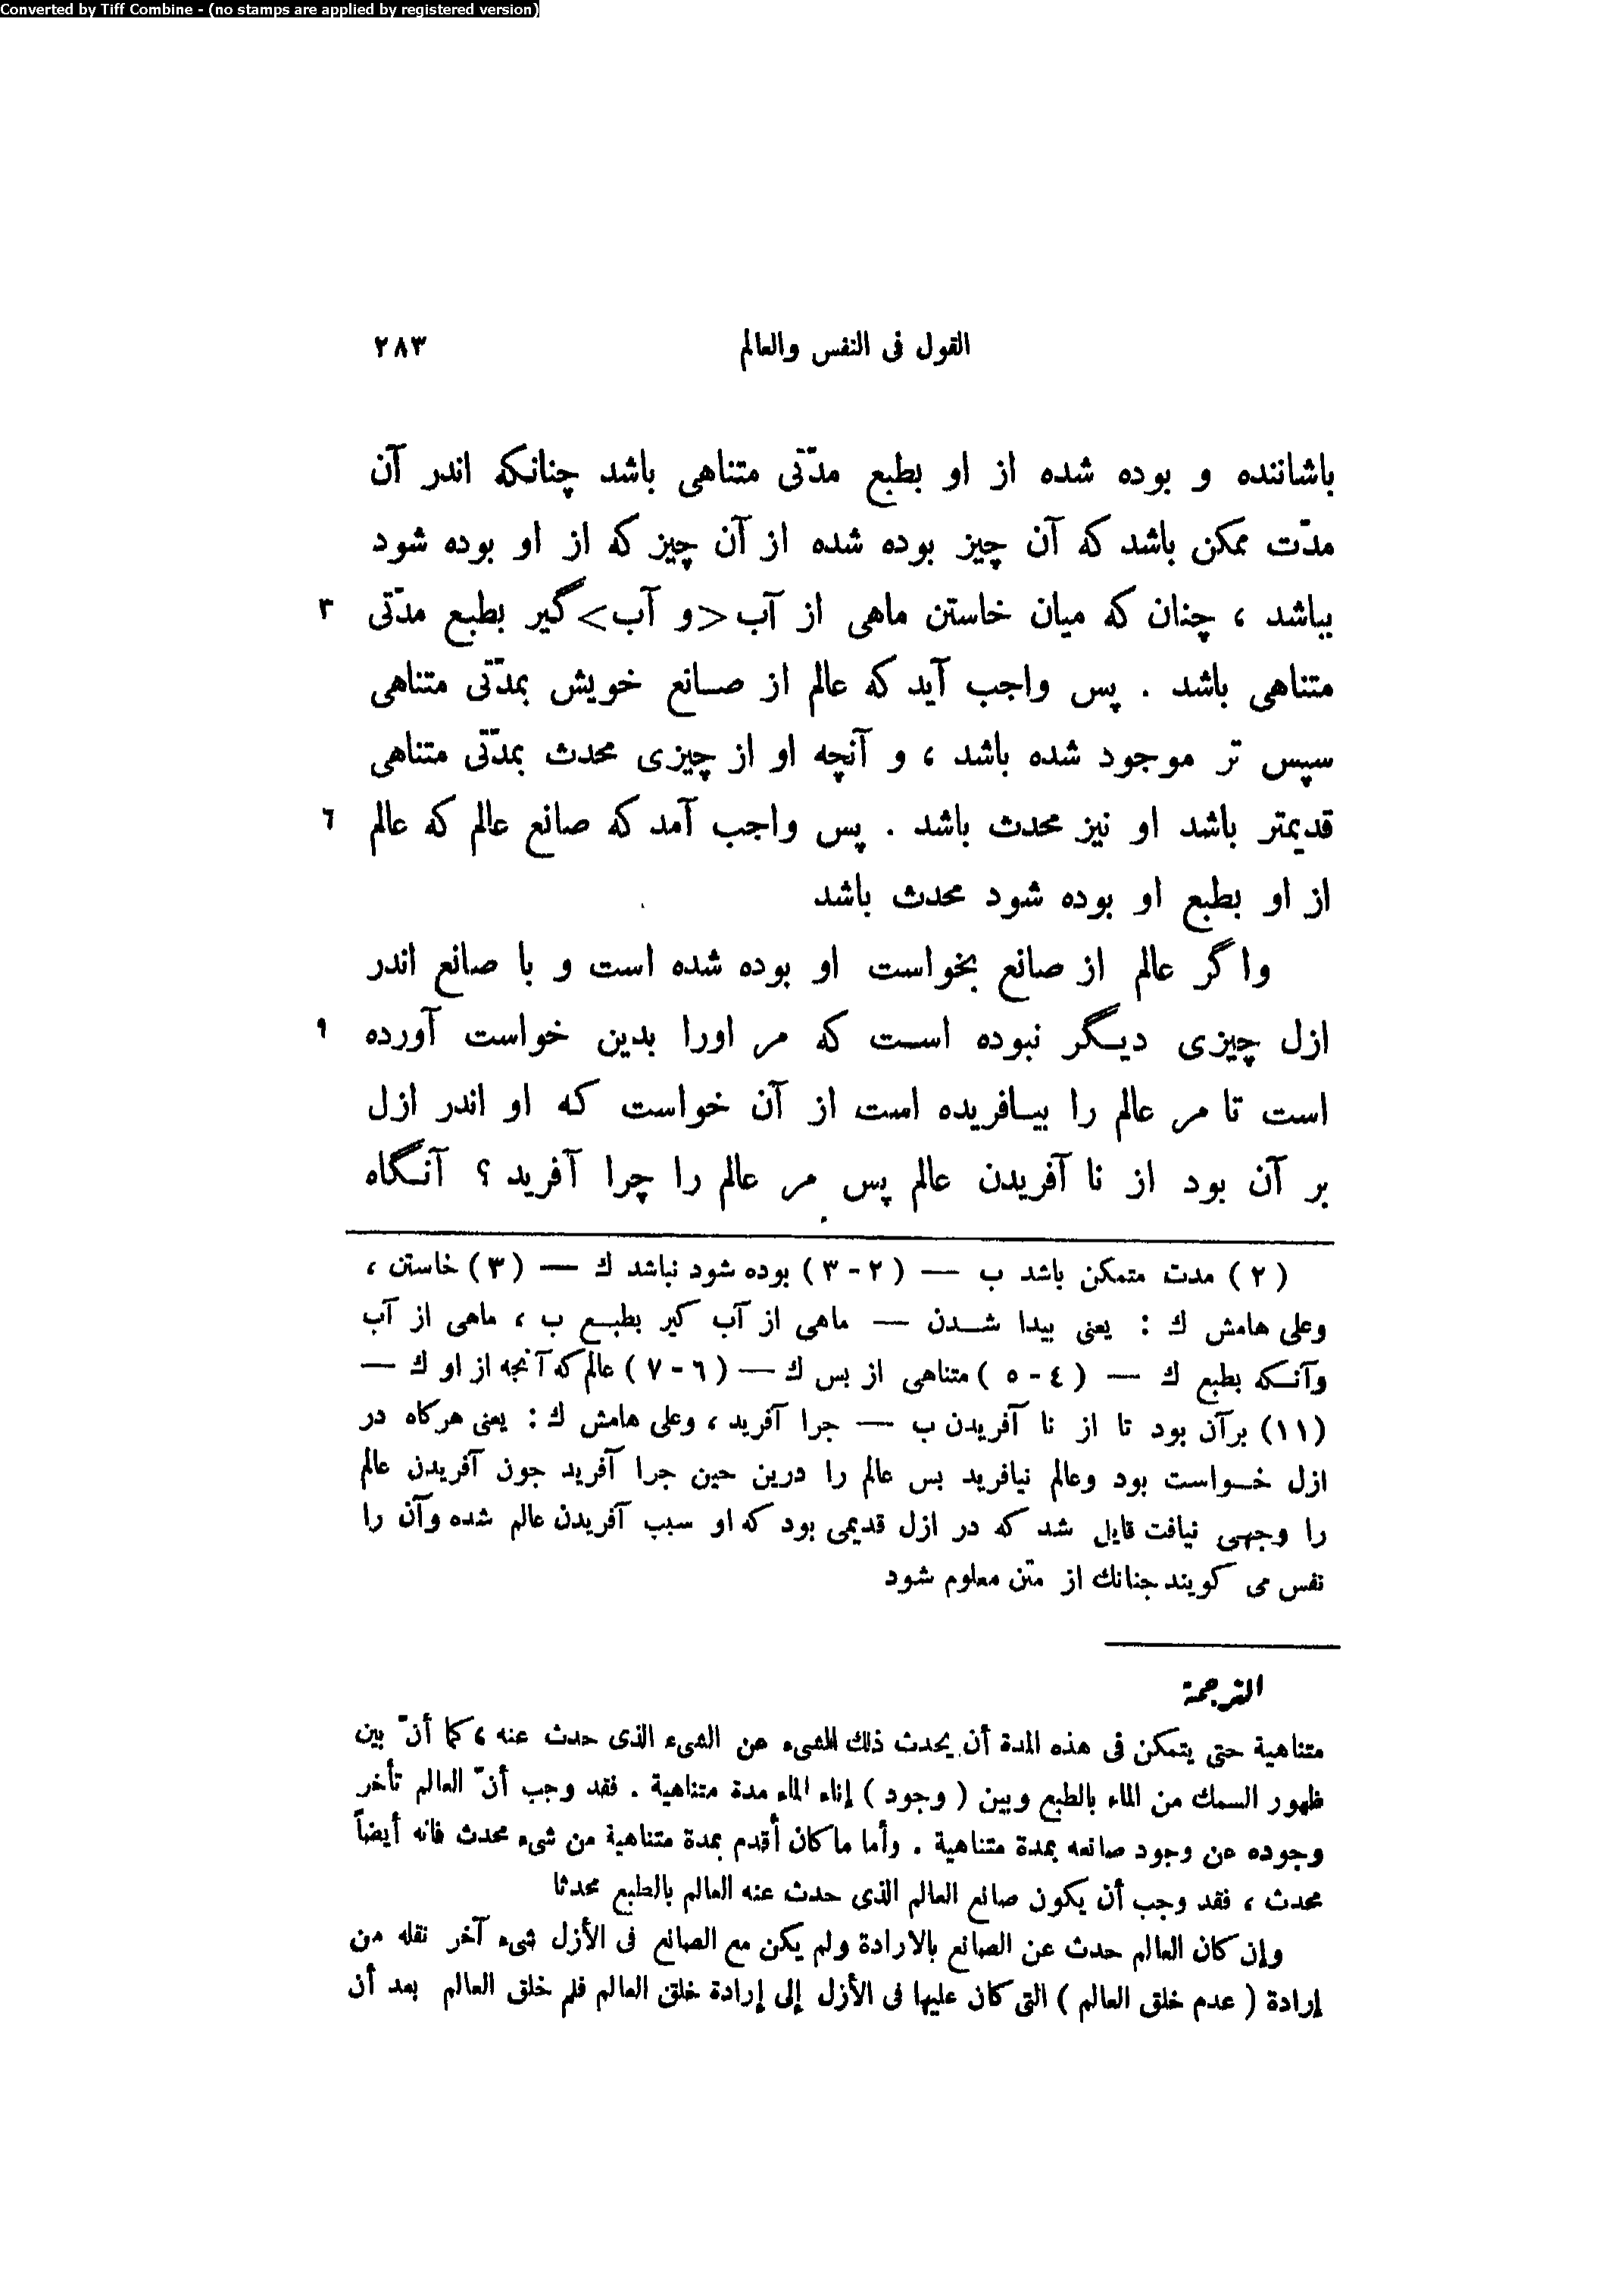 Converted by Tiff Combine - (no stamps are applied by registered version)
القول فى النفس والعالم ٢٨٣
باشاننده و بوده شده از او بطبع مدّتى متناهى باشد چنانكه اندر آن
مدّت ممكن باشد كه آن چيز بوده شده از آن چيز كه از او بوده شود
بباشد ، چنان كه ميان خاستن ماهى از آب <و آب> گير بطبع مدّتى ٣
متناهى باشد . پس واجب آيد كه عالم از صانع خويش بمدّتى متناهى
سپس تر موجود شده باشد ، و آنچه او از چيزى محدث بمدّتى متناهى
قديمتر باشد او نيز محدث باشد . پس واجب آمد كه صانع عالم كه عالم ٦
از او بطبع او بوده شود محدث باشد
واگر عالم از صانع بخواست او بوده شده است و با صانع اندر
ازل چيزى ديگر نبوده است كه مر اورا بدين خواست آورده ٩
است تا مر عالم را بيافريده است از آن خواست كه او اندر ازل
بر آن بود از نا آفريدن عالم پس مر عالم را چرا آفريد ؟ آنگاه
(٢) مدت متمكن باشد ب — (٢-٣) بوده شود نباشد ك — (٣) خاستن ،
وعلى هامش ك : يعنى بيدا شدن — ماهى از آب كير بطبع ب ، ماهى از آب
وآنكه بطبع ك — (٤-٥) متناهى از بس ك — (٦-٧) عالم كه آنجه از او ك —
(١١) برآن بود تا از نا آفريدن ب — جرا آفريد ، وعلى هامش ك : يعنى هركاه در
ازل خواست بود وعالم نيافريد بس عالم را درين حين جرا آفريد جون آفريدن عالم
را وجهى نيافت قايل شد كه در ازل قديمى بود كه او سبب آفريدن عالم شده وآن را
نفس مى كويند جنانك از متن معلوم شود
الترجمة
متناهية حتى يتمكن فى هذه المدة أن يحدث ذلك الشىء عن الشىء الذى حدث عنه ، كما أنّ بين
ظهور السمك من الماء بالطبع وبين (وجود) إناء الماء مدة متناهية . فقد وجب أنّ العالم تأخر
وجوده عن وجود صانعه بمدة متناهية . وأما ما كان أقدم بمدة متناهية من شىء محدث فانه أيضاً
محدث ، فقد وجب أن يكون صانع العالم الذى حدث عنه العالم بالطبع محدثا
وإن كان العالم حدث عن الصانع بالارادة ولم يكن مع الصانع فى الأزل شىء آخر نقله من
إرادة (عدم خلق العالم) التى كان عليها فى الأزل إلى إرادة خلق العالم فلم خلق العالم بعد أن